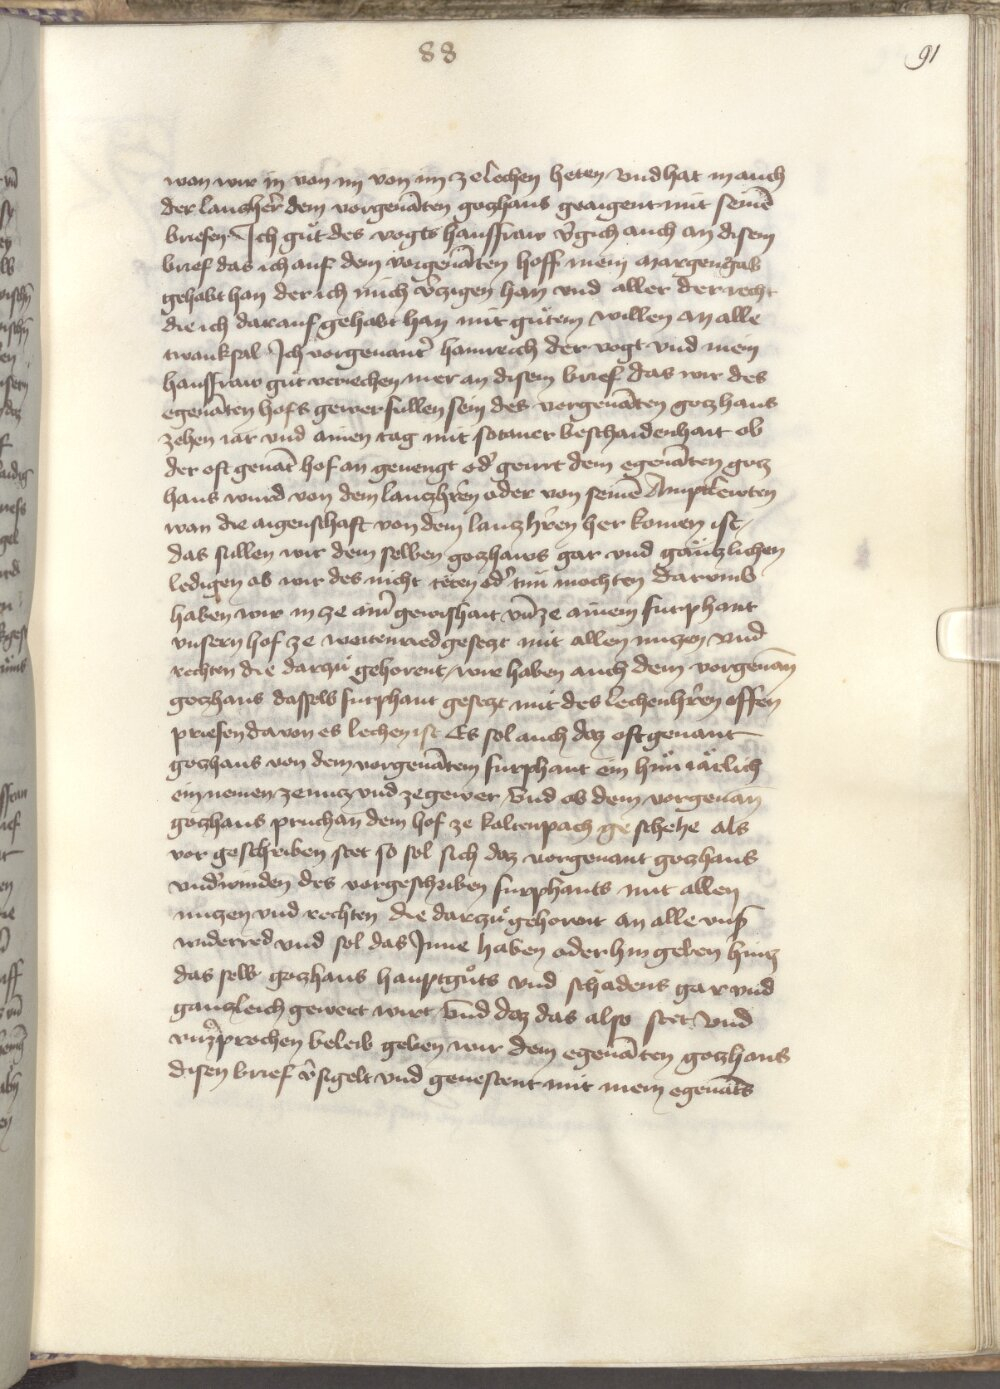 88
91
wan wir in von im von im ze lechen heten Vnd hat in auch
der lanczher̄ dem vorgenāten goczhaus geaigent mit seinē
briefen Ich gůt des vogts hausfraw v̄gich auch an disem
brief das ich auf dem vorgenāten hoff mein margengab
gehabt han der ich mich v̄czigen han vnd aller der recht
die ich darauf gehabt han mit gůtem willen an alle
twanksal Ich vorgenant̄ hainreich der vogt vnd mein
hausfraw gut veriechen mer an disem brief das wir des
egenāten hofs gewer sullen sein des vorgenāten goczhaus
zehen iar vnd ainen tag mit sotaner beschaidenhait ob
der oft genāt hof an geuengt od̄ geirrt dem egenāten gocz
haus wurd von dem lanczhr̄en oder von seinē Ampttewten
wan die aigenschaft von dem lanczhr̄en her komen ist
das sullen wir dem selben goczhaws gar vnd gänczlichen
ledigen ob wir des nicht teten od̄ tun mochten Darvmb
haben wir in ze ainē gewishait vn̄ ze ainem furphant
vnsern hof ze weitenried geseczt mit allen nuczen vnd
rechten die darczů gehorent wir haben auch dem vorgenan̄
goczhaus dasselb furphant geseczt mit des lechenhr̄en offen
priefen da von es lechen ist Es sol auch daz oft genant
goczhaus von dem vorgenātem furphant ein hůn iärlich
ein nemen ze nucz vnd ze gewer Vnd ob dem vorgenan̄
goczhaus pruch an dem hof ze kaltenpach geschehe als
vor geschriben stet so sol sich daz vorgenant goczhaus
vnd̄winden des vorgeschriben furphants mit allen
nuczen vnd rechten die darczů gehorent an alle vnser
widerred vnd sol das Inne haben oder hin geben hincz
das selb goczhaus hauptgůts vnd schadens gar vnd
ganczleich gewert wirt Vnd daz das also stet vnd
vnzeprochen beleib geben wir dem egenāten goczhaus
disen brief v̄sigelt vnd geuestent mit mein egenāts